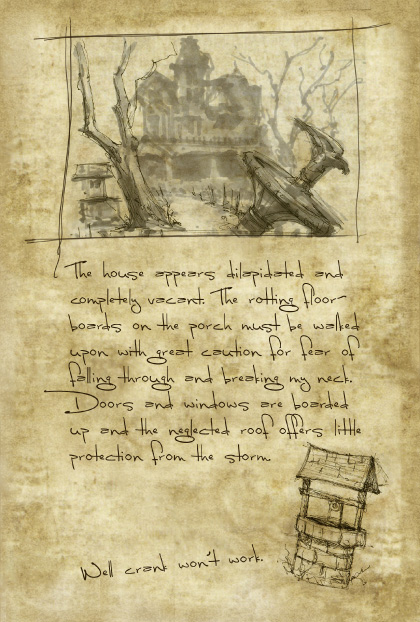 The house appears dilapidated and
completely vacant. The rotting floor-
boards on the porch must be walked
upon with great caution for fear of
falling through and breaking my neck.
Doors and windows are boarded
up and the neglected roof offers little
protection from the storm
Well crank won't work.